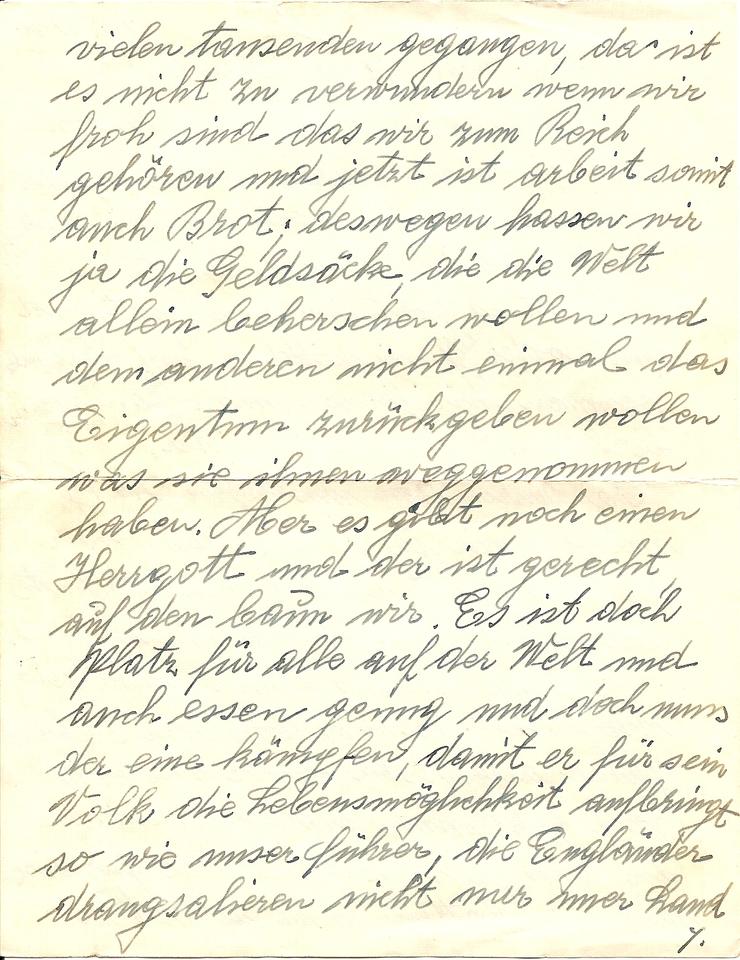 vielen tausenden gegangen, da ist
es nicht zu verwundern wenn wir
froh sind das wir zum Reich
gehören und jetzt ist arbeit somit
auch Brot; deswegen hassen wir
ja die Geldsäcke, die die Welt
allein beherschen wollen und
dem anderen nicht einmal das
Eigentum zurückgeben wollen
was sie ihnen weggenommen
haben. Aber es gibt noch einen
Herrgott und der ist gerecht,
auf den baun wir. Es ist doch
Platz für alle auf der Welt und
auch essen genug und doch mus
der eine kämpfen, damit er für sein
Volk die Lebensmöglichkeit aufbringt
so wie unser Führer, die Engländer
drangsalieren nicht nur unser Land